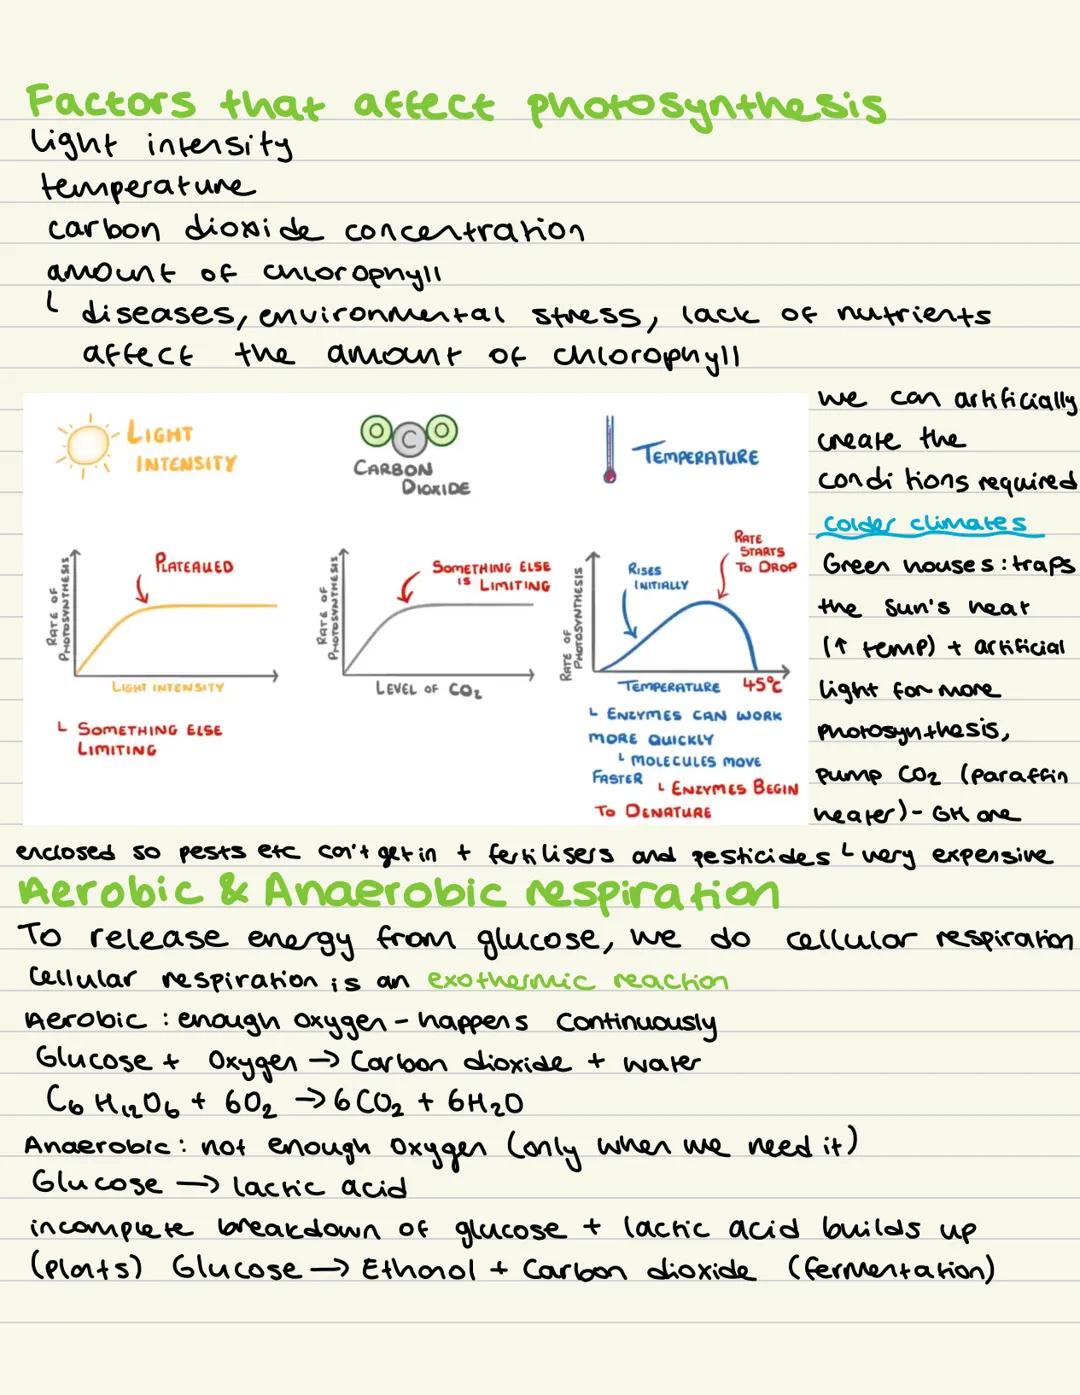 Factors that affect photosynthesis
light intensity
temperature
carbon dioxide concentration
amount of chlorophyll
└ diseases, environmental stress, lack of nutrients
affect the amount of chlorophyll
LIGHT
INTENSITY
RATE OF
PHOTOSYNTHESIS
PLATEAUED
LIGHT INTENSITY
└ SOMETHING ELSE
LIMITING
O C O
CARBON
DIOXIDE
RATE OF
PHOTOSYNTHESIS
SOMETHING ELSE
IS LIMITING
LEVEL OF CO₂
TEMPERATURE
RATE OF
PHOTOSYNTHESIS
RISES
INITIALLY
RATE
STARTS
TO DROP
TEMPERATURE 45°C
└ ENZYMES CAN WORK
MORE QUICKLY
└ MOLECULES MOVE
FASTER
└ ENZYMES BEGIN
TO DENATURE
we can artificially
create the
conditions required
colder climates
Green houses: traps
the sun's heat
(↑ temp) + artificial
light for more
photosynthesis,
pump CO₂ (paraffin
heater) - GH are
enclosed so pests etc can't get in + fertilisers and pesticides └ very expensive
Aerobic & Anaerobic respiration
To release energy from glucose, we do cellular respiration
Cellular respiration is an exothermic reaction
Aerobic: enough oxygen - happens continuously
Glucose + Oxygen → Carbon dioxide + water
C₆H₁₂O₆ + 6O₂ → 6CO₂ + 6H₂O
Anaerobic: not enough oxygen (only when we need it)
Glucose → lactic acid
incomplete breakdown of glucose + lactic acid builds up
(plants) Glucose → Ethanol + Carbon dioxide (fermentation)